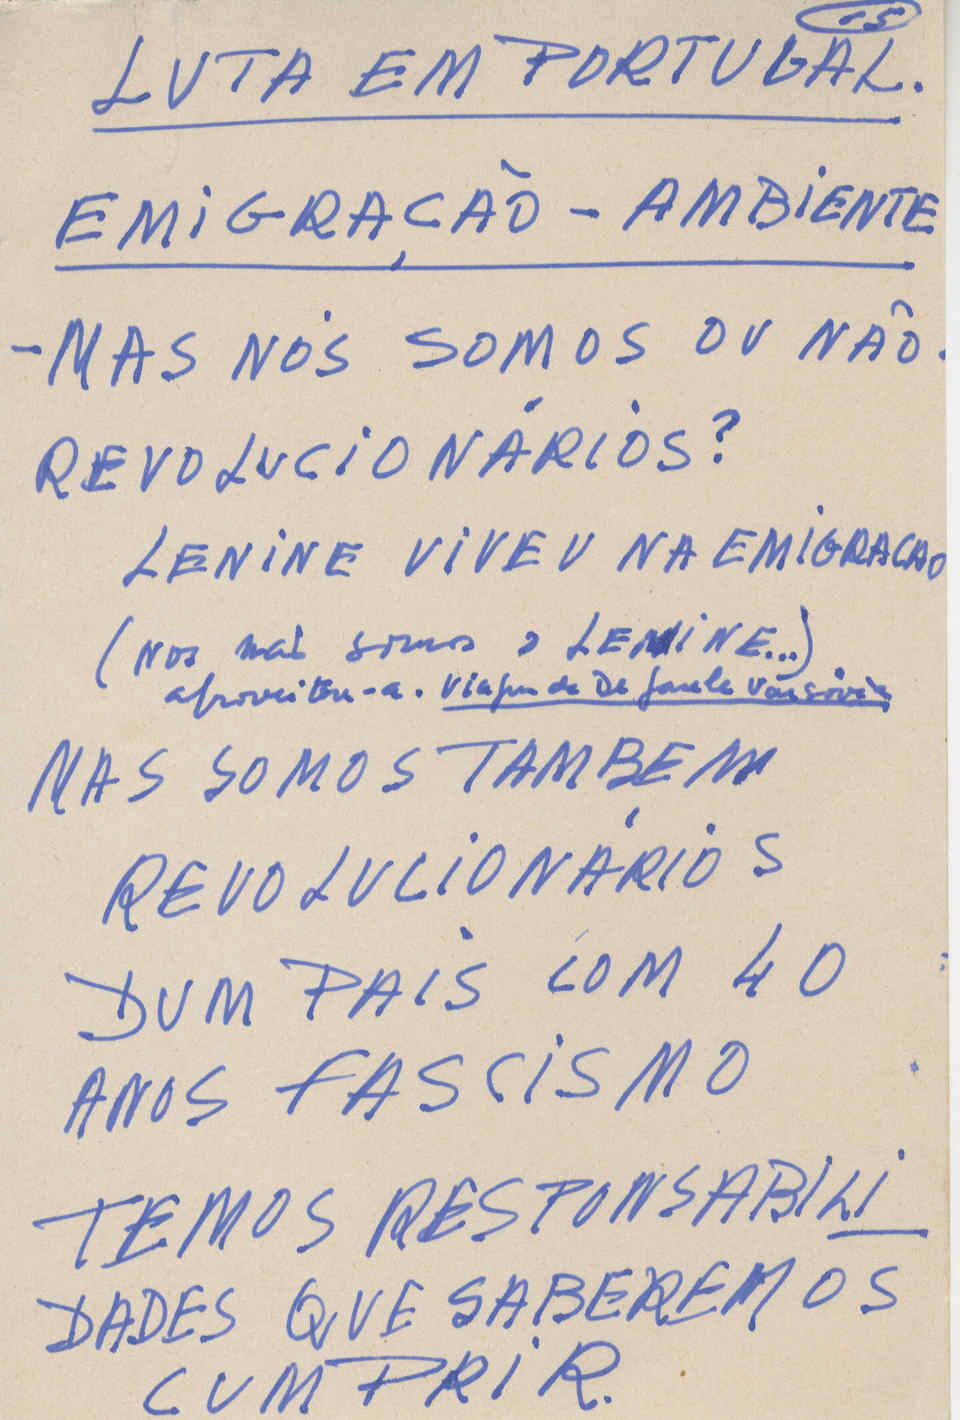 15
LUTA EM PORTUGAL.
EMIGRAÇÃO - AMBIENTE
- MAS NÓS SOMOS OU NÃO
REVOLUCIONÁRIOS?
LENINE VIVEU NA EMIGRACAO
(NOS não somos o LENINE...)
aproveitou-a. Viagem de De Gaulle Varsóvia
MAS SOMOS TAMBEM
REVOLUCIONÁRIOS
DUM PAIS COM 40
ANOS FASCISMO
TEMOS RESPONSABILI
DADES QUE SABEREMOS
CUMPRIR.